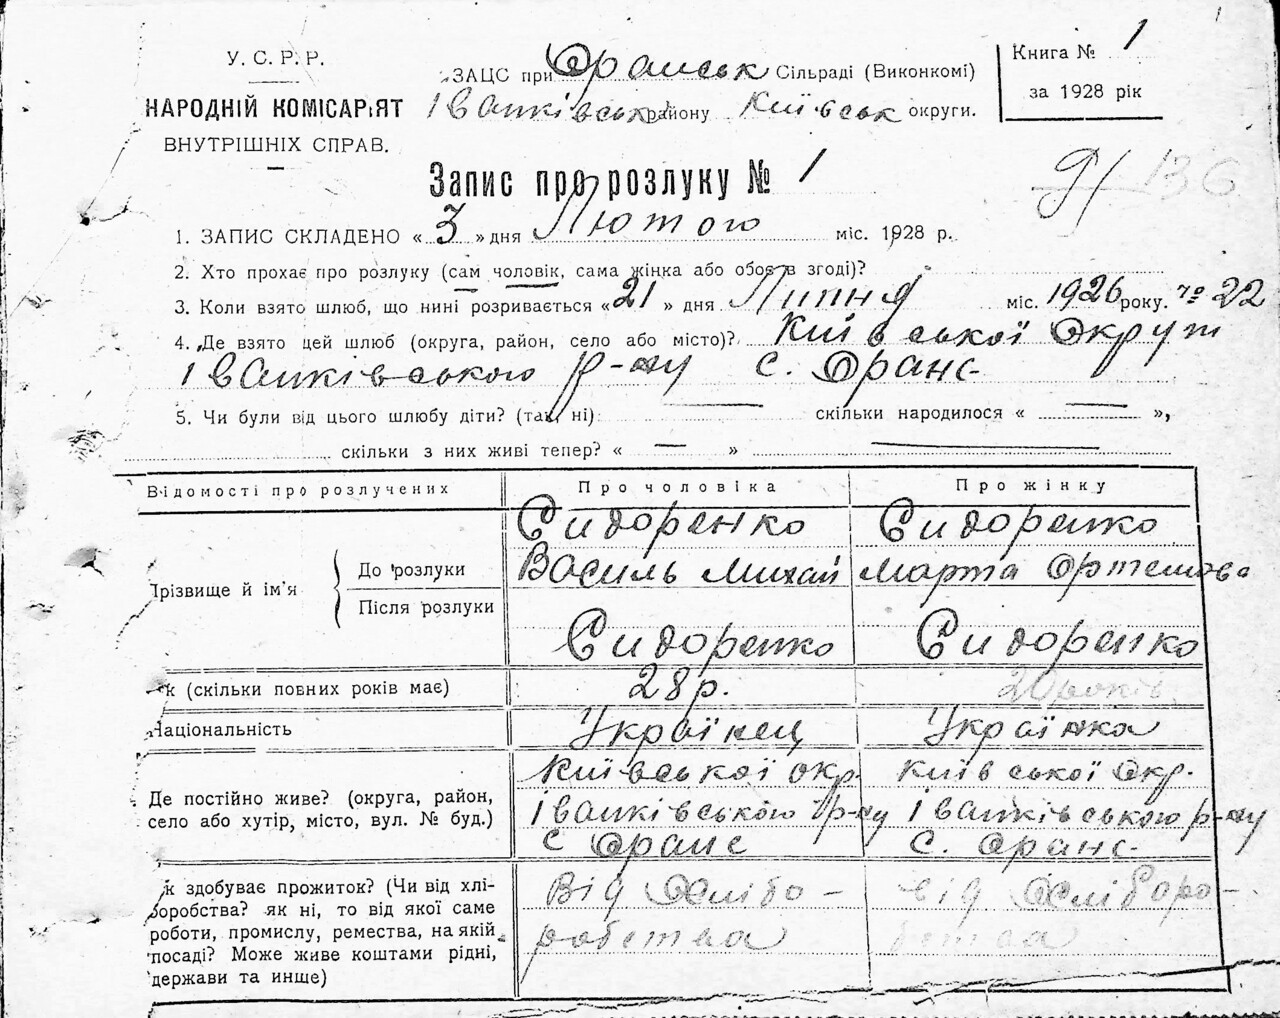 У. С. Р. Р.
НАРОДНІЙ КОМІСАРІЯТ
ВНУТРІШНІХ СПРАВ.
ЗАЦС при Оранськ Сільраді (Виконкомі)
Іванківськ району Київськ округи.
Книга № 1
за 1928 рік
Запис про розлуку № 1
91 136
1. ЗАПИС СКЛАДЕНО « 3 » дня Лютого міс. 1928 р.
2. Хто прохає про розлуку (сам чоловік, сама жінка або обоє в згоді)?
3. Коли взято шлюб, що нині розривається « 21 » дня Липня міс. 1926 року. № 22
4. Де взято цей шлюб (округа, район, село або місто)? Київської Округи
Іванківського р-ну с. Оранс-
5. Чи були від цього шлюбу діти? (так, ні) — скільки народилося « — »,
скільки з них живі тепер? « — » —
Відомості про розлучених Про чоловіка Про жінку
Прізвище й ім'я
До розлуки
Сидоренко Сидоренко
Василь Михай Марта Ортемова
Після розлуки
Сидоренко Сидоренко
к (скільки повних років має) 28 р. 20 років
Національність Українец Українка
Де постійно живе? (округа, район,
село або хутір, місто, вул. № буд.)
Київської окр. Київської Окр.
Іванківського р-ну Іванківського р-ну
с Оранс с. Оранс-
к здобуває прожиток? (Чи від хлі-
боробства? як ні, то від якої саме
роботи, промислу, ремества, на якій
посаді? Може живе коштами рідні,
держави та инше)
Від Хлібо- від Хліборо-
робства бства